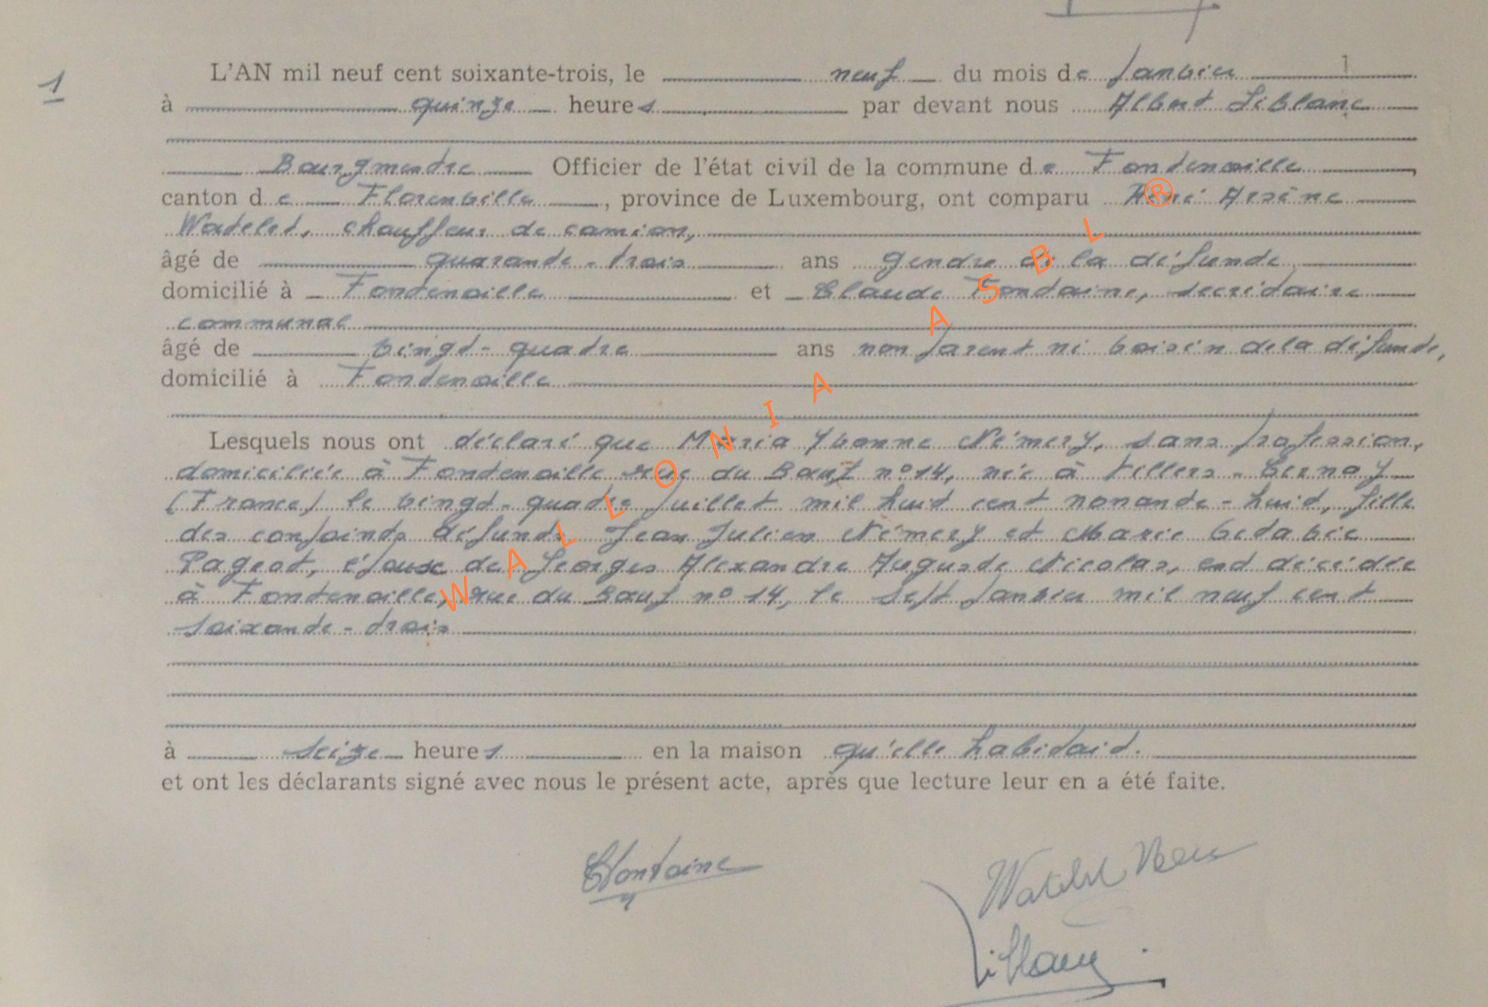 1
L'AN mil neuf cent soixante-trois, le neuf du mois de Janvier 1
à quinze heures par devant nous Albert Liblanc
Bourgmestre Officier de l'état civil de la commune de Fontenoille
canton de Florenville, province de Luxembourg, ont comparu René Arsène
Watelet, chauffeur de camion,
âgé de quarante-trois ans gendre de la défunte
domicilié à Fontenoille et Claude Fontaine, secrétaire
communal
âgé de vingt-quatre ans non parent ni voisin de la défunte,
domicilié à Fontenoille
Lesquels nous ont déclaré que Maria Yvonne Némery, sans profession,
domiciliée à Fontenoille rue du Bœuf n° 14, née à Villers-Cernay
(France) le vingt-quatre Juillet mil huit cent nonante-huit, fille
des conjoints défunts Jean Julien Némery et Marie Octavie
Pageot, épouse de Georges Alexandre Auguste Nicolas, est décédée
à Fontenoille, rue du Bœuf n° 14, le sept Janvier mil neuf cent
soixante-trois
à seize heures en la maison qu'elle habitait.
et ont les déclarants signé avec nous le présent acte, après que lecture leur en a été faite.
CFontaine
Watelet René
Liblanc
WALLONIA ASBL ®